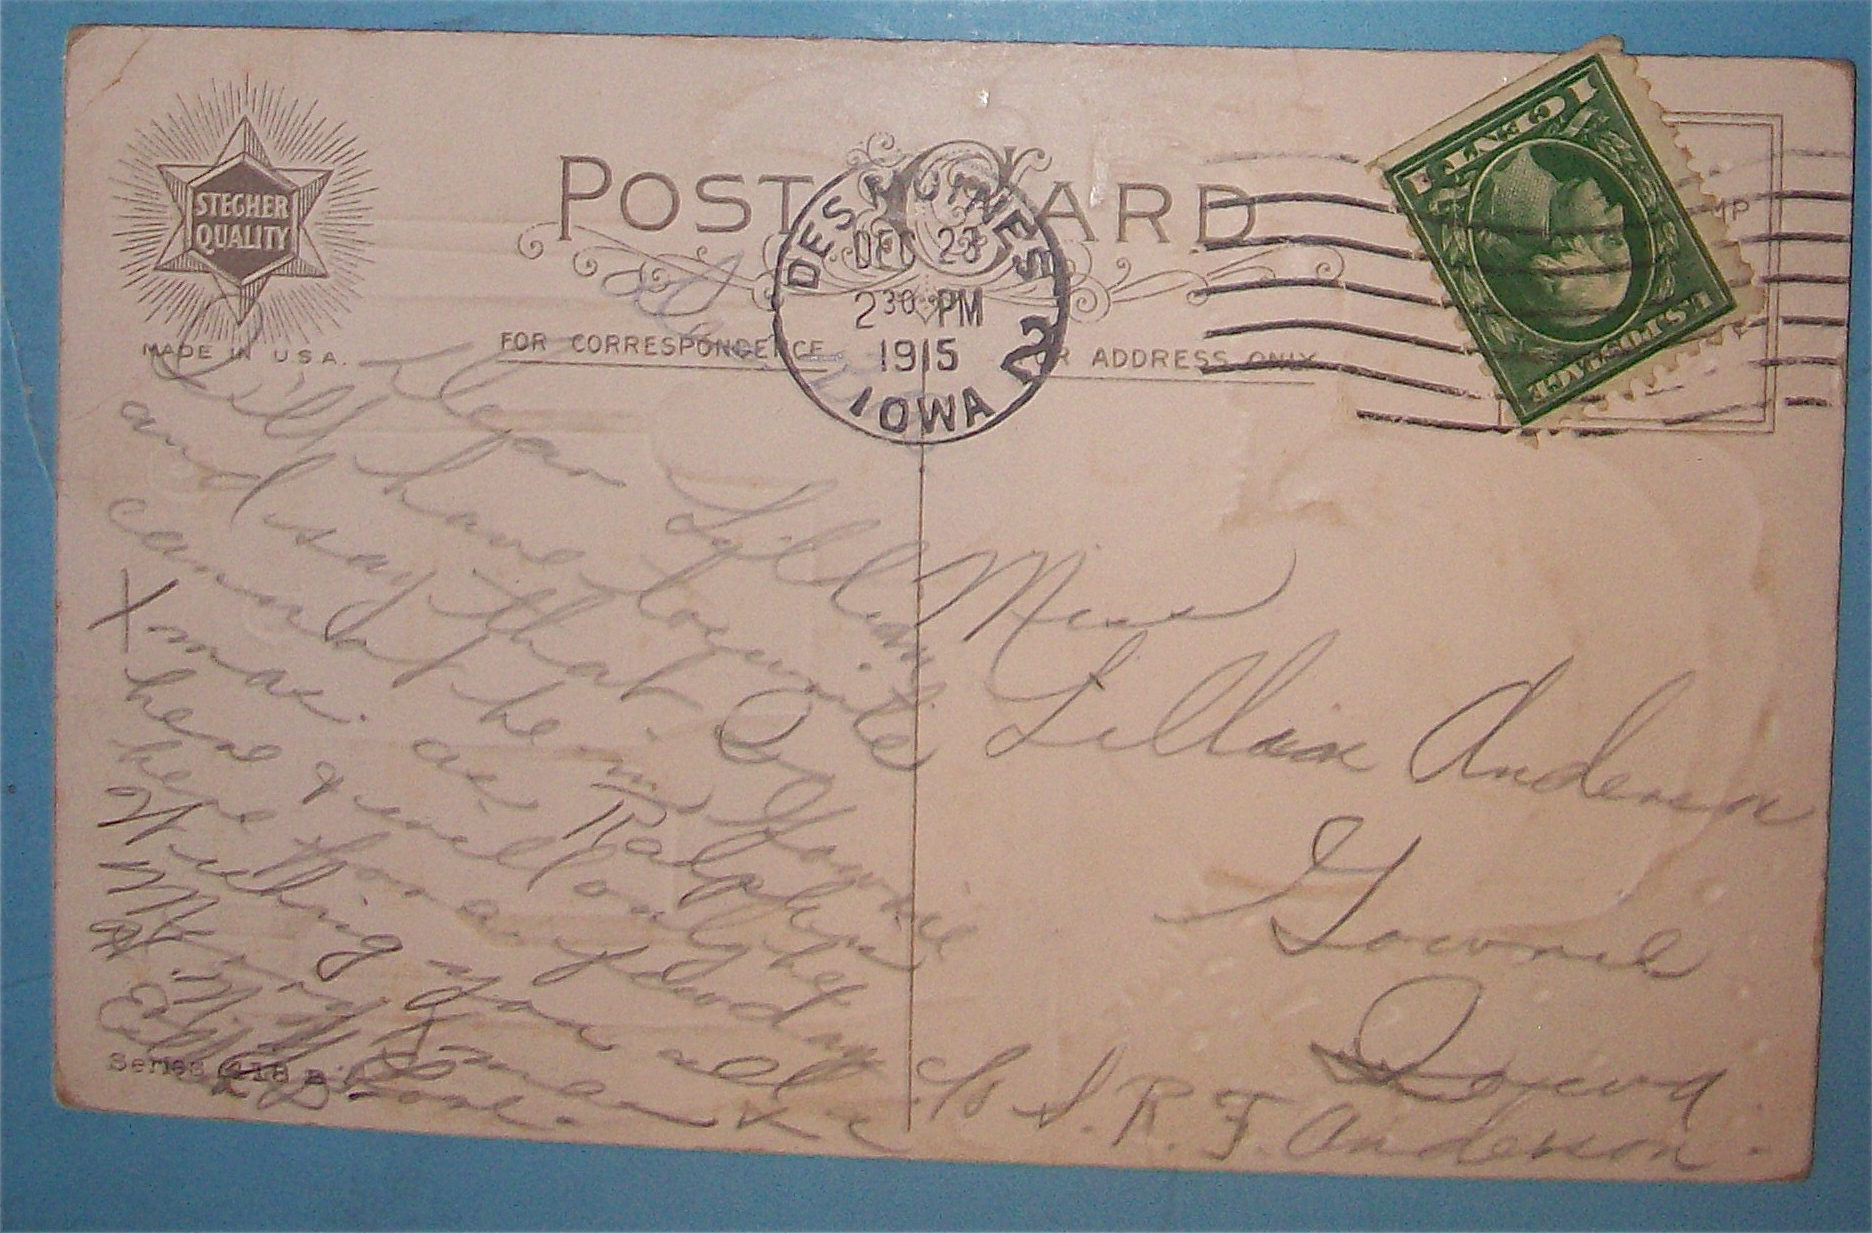 STEGHER
QUALITY
MADE IN U.S.A.
POST CARD
FOR CORRESPONDENCE
FOR ADDRESS ONLY
DES MOINES
DEC 23
2 30 PM
1915
IOWA
2
U.S. POSTAGE
1 CENT 1
Dear Lillian
I'll have to write
and say that I
cannot be in Gowrie
Xmas. as Ralph is
here & will only be
here for a few days
Wishing you all
Merry Xmas &
N. Y.
Love.
Series 418 B
Miss
Lillian Anderson
Gowrie
Iowa
c/o S. R. F. Anderson.